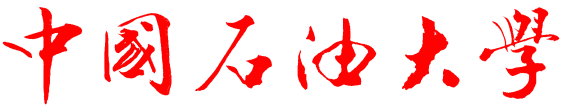 中國石油大學